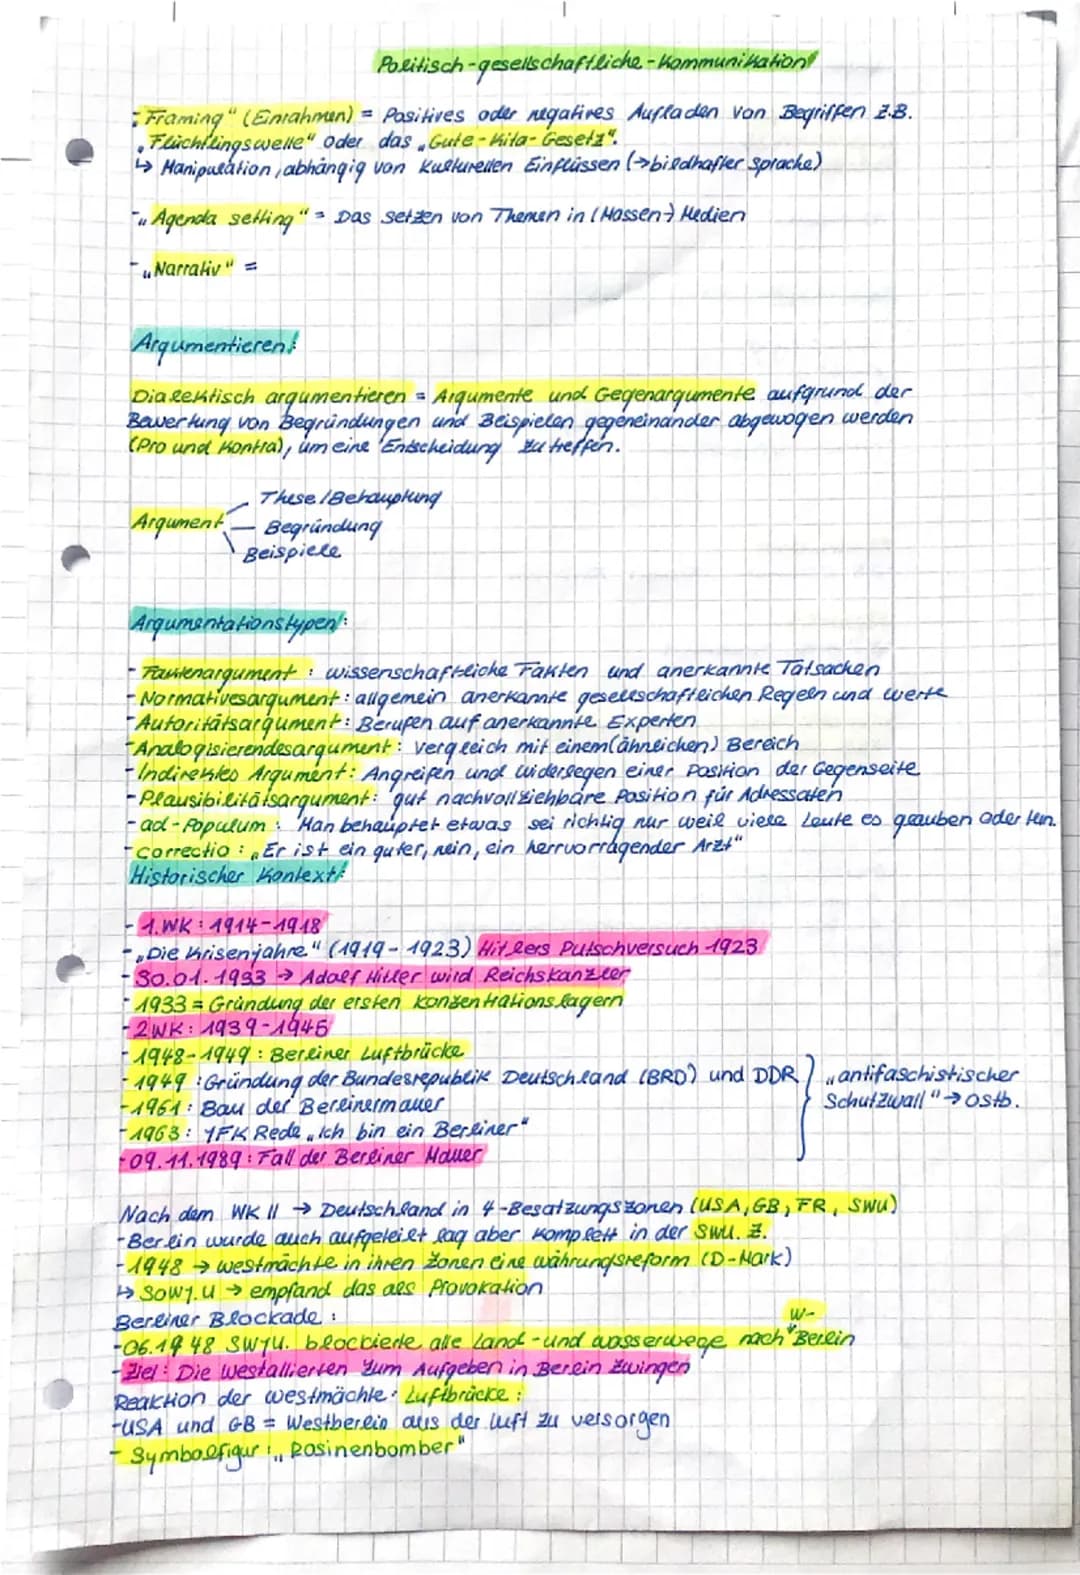 Politisch-gesellschaftliche-Kommunikation
- „Framing" (Einrahmen) = Positives oder negatives Aufladen von Begriffen z.B.
„Flüchtlingswelle" oder das „Gute-Kita-Gesetz".
↳ Manipulation, abhängig von kulturellen Einflüssen (→bildhafter Sprache)
- „Agenda setting" = Das setzen von Themen in (Massen-) Medien
- „Narrativ" =
Argumentieren:
Dialektisch argumentieren = Argumente und Gegenargumente aufgrund der
Bewertung von Begründungen und Beispielen gegeneinander abgewogen werden
(Pro und Kontra), um eine Entscheidung zu treffen.
These/Behauptung
Argument — Begründung
Beispiele
Argumentationstypen:
- Faktenargument : wissenschaftliche Fakten und anerkannte Tatsachen
- Normativesargument : allgemein anerkannte gesellschaftlichen Regeln und Werte
- Autoritätsargument : Berufen auf anerkannte Experten
- Analogisierendesargument : Vergleich mit einem (ähnlichen) Bereich
- Indirektes Argument : Angreifen und widerlegen einer Position der Gegenseite
- Plausibilitätsargument : gut nachvollziehbare Position für Adressaten
- ad-Populum : Man behauptet etwas sei richtig nur weil viele Leute es glauben oder tun.
- correctio : „Er ist ein guter, nein, ein herrvorragender Arzt"
Historischer Kontext:
- 1.WK : 1914-1918
- „Die Krisenjahre" (1919-1923) Hitlers Putschversuch 1923
- 30.01.1933 → Adolf Hitler wird Reichskanzler
- 1933 = Gründung der ersten Konzentrationslagern
- 2WK : 1939-1945
- 1948-1949 : Berliner Luftbrücke
- 1949 : Gründung der Bundesrepublik Deutschland (BRD) und DDR
„antifaschistischer
Schutzwall" → Ostb.
- 1961 : Bau der Berlinermauer
- 1963 : JFK Rede „Ich bin ein Berliner"
- 09.11.1989 : Fall der Berliner Mauer
Nach dem WK II → Deutschland in 4-Besatzungszonen (USA, GB, FR, SWU)
- Berlin wurde auch aufgeteilt lag aber komplett in der SWU. Z.
- 1948 → Westmächte in ihren Zonen eine Währungsreform (D-Mark)
↳ Sowj.U → empfand das als Provokation
Berliner Blockade :
W-
- 06.1948 SWJU. blockierte alle Land-und Wasserwege nach Berlin
- Ziel : Die Westallierten zum Aufgeben in Berlin zwingen
Reaktion der Westmächte : Luftbrücke :
- USA und GB = Westberlin aus der Luft zu versorgen
- Symbolfigur : „Rosinenbomber"